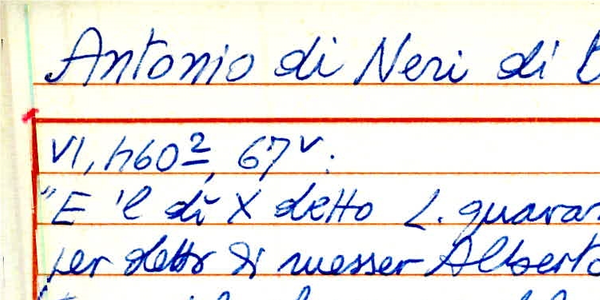 Antonio di Neri di
VI, 1460², 67v:
"E 'l dì X detto L. quaran
per detto di messer Alberto